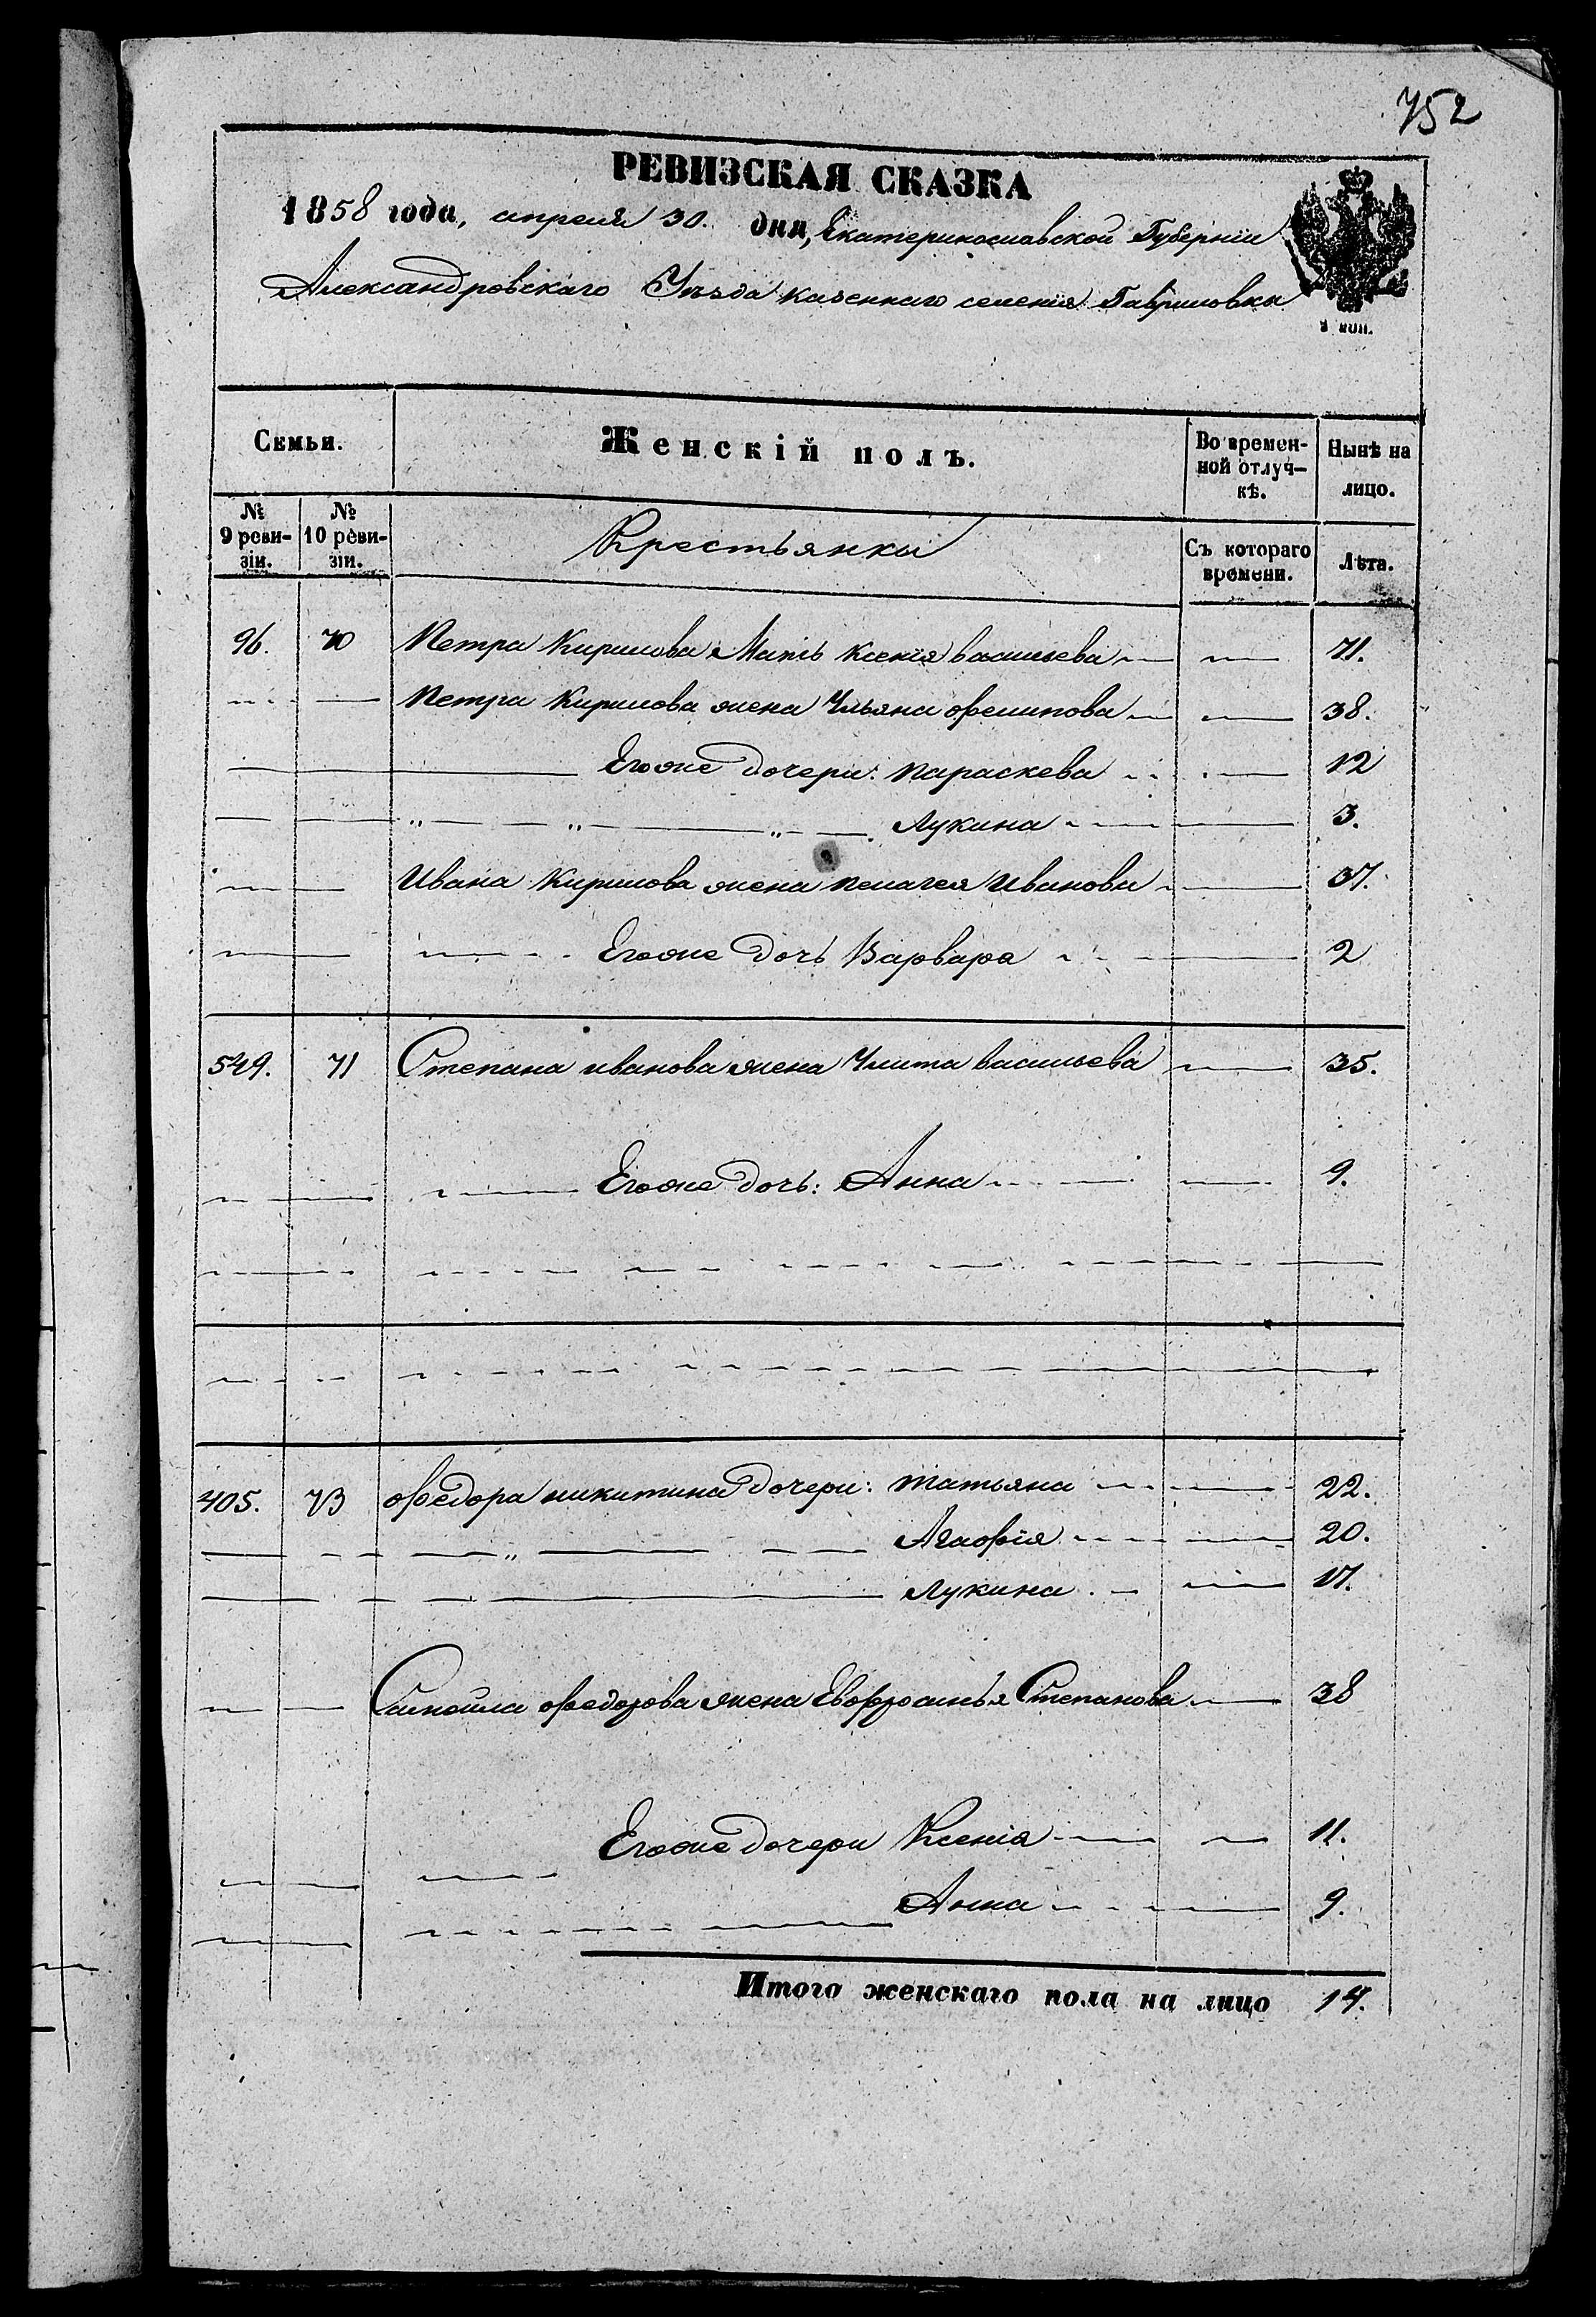 752
РЕВИЗСКАЯ СКАЗКА
1858 года, апреля 30. дня, Екатеринославской Губерніи
Александровскаго Уѣзда казеннаго селенія Гавриловки
Семьи.
Женскій полъ.
Во времен-
ной отлуч-
кѣ.
Нынѣ на
лицо.
№
9 реви-
зіи.
№
10 реви-
зіи.
Крестьянки
Съ котораго
времени.
Лѣта.
96. 70 Петра Кирилова Мать Ксенія васильева 71.
Петра Кирилова жена Ульяна филипова 38.
Егоже дочери: параскева 12
Лукина 3.
Ивана Кирилова жена пелагея Иванова 37.
Егоже дочь Варвара 2
549. 71 Степана иванова жена Улита васильева 35.
Егоже дочь: Анна 9.
405. 73 федора никитина дочери: татьяна 22.
Агафія 20.
Лукина 17.
Самойла федорова жена Евфросинья Степанова 38
Егоже дочери Ксенія 11.
Анна 9.
Итого женскаго пола на лицо 14.